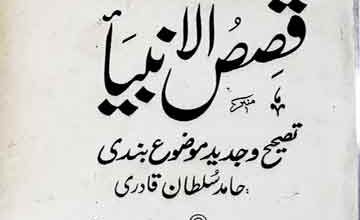 قصص الانبیاء
تصحیح و جدید موضوع بندی
حامد سلطان قادری